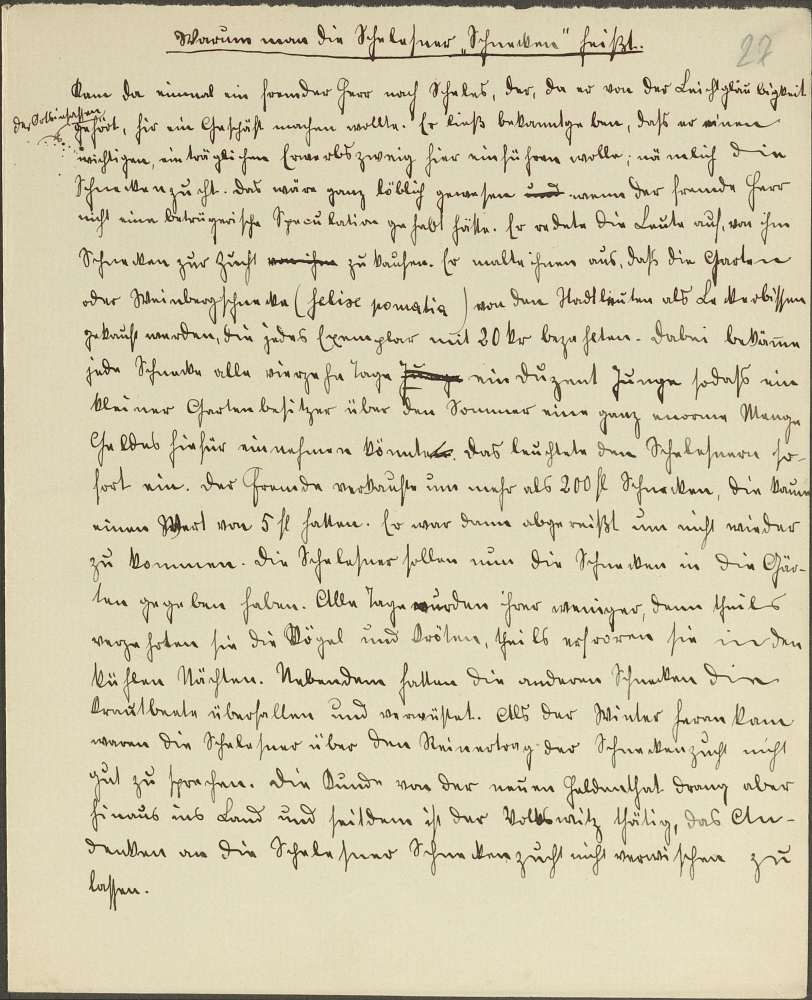 Warum man die Schelesner „Schnecken“ heißt.
27
Kam da einmal ein fremder Herr nach Scheles, der, da er von der Leichtgläubigkeit
der Ortsinsassen
gehört, hier ein Geschäft machen wollte. Er ließ bekanntgeben, dass er einen
wichtigen, einträglichen Erwerbszweig hier einführen wolle; nämlich die
Schneckenzucht. Das wäre ganz löblich gewesen und wenn der fremde Herr
nicht eine betrügerische Speculation gehabt hätte. Er redete die Leute auf, von ihm
Schnecken zur Zucht von ihm zu kaufen. Er malte ihnen aus, daß die Garten
oder Weinbergschnecke (helix pomatia) von den Stadtleuten als Leckerbissen
gekauft werden, die jedes Exemplar mit 20 kr bezahlten. Dabei bekäme
jede Schnecke alle vierzehn Tage Junge ein Duzent Junge sodass ein
kleiner Gartenbesitzer über den Sommer eine ganz enorme Menge
Geldes hiefür einnehmen könnte. Das leuchtete den Schelesnern so-
fort ein. Der Fremde verkaufte um mehr als 200 fl Schnecken, die kaum
einen Wert von 5 fl hatten. Er war dann abgereißt um nicht wieder
zu kommen. Die Schelesner sollen nun die Schnecken in die Gär-
ten gegeben haben. Alle Tage wurden ihrer weniger, denn theils
verzehrten sie die Vögel und Kröten, theils erfroren sie in den
kühlen Nächten. Nebendem hatten die anderen Schnecken die
Krautbeete überfallen und verwüstet. Als der Winter herankam
waren die Schelesner über den Reinertrag der Schneckenzucht nicht
gut zu sprechen. Die Kunde von der neuen Heldenthat drang aber
hinaus ins Land und seitdem ist der Volkswitz thätig, das An-
denken an die Schelesner Schneckenzucht nicht verwischen zu
lassen.